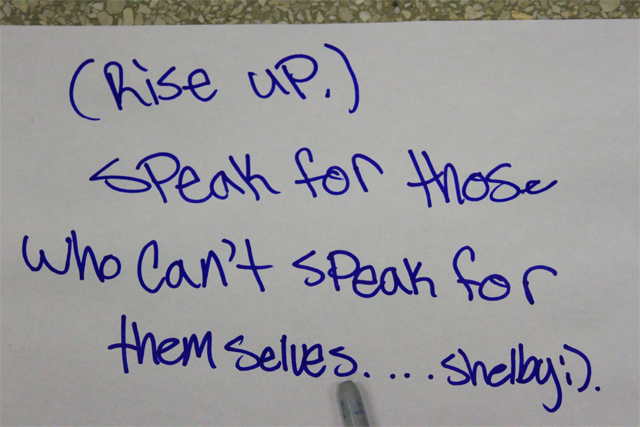 (Rise up.)
speak for those
who can't speak for
themselves. ... shelby:).